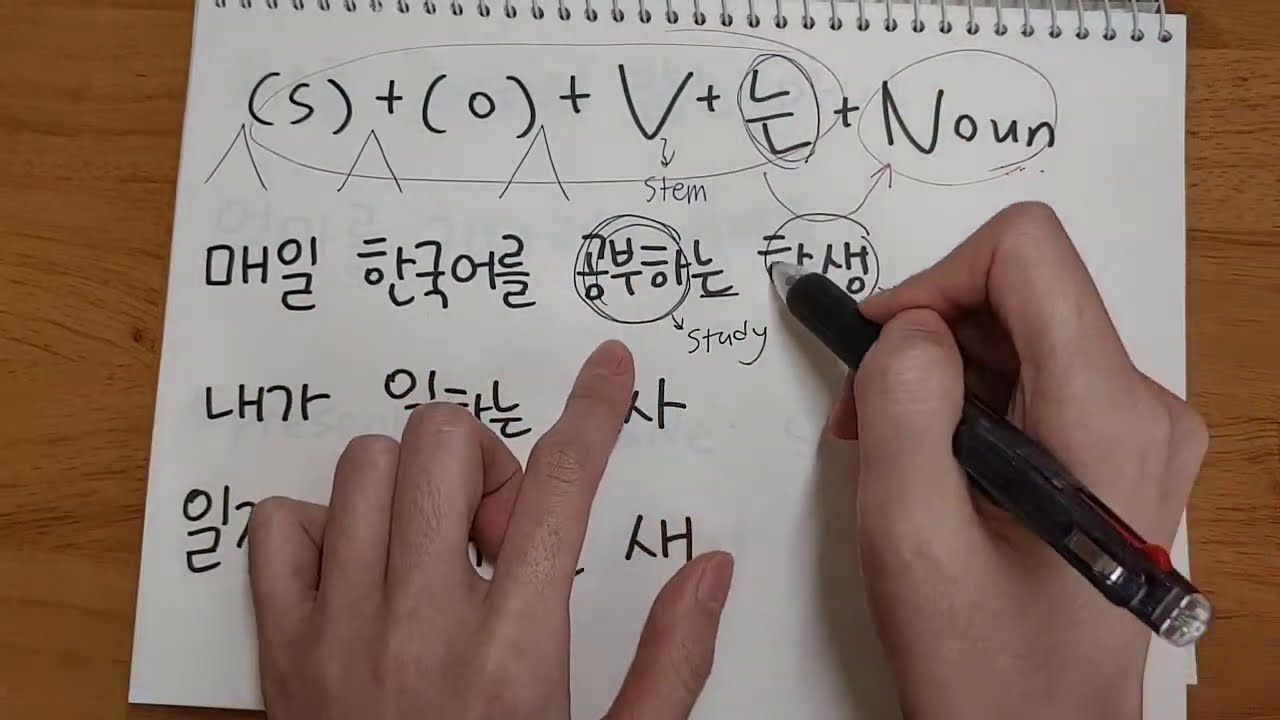 (S) + (O) + V + 는 + Noun
stem
매일 한국어를 공부하는 학생
study
내가 일하는 사
일 새